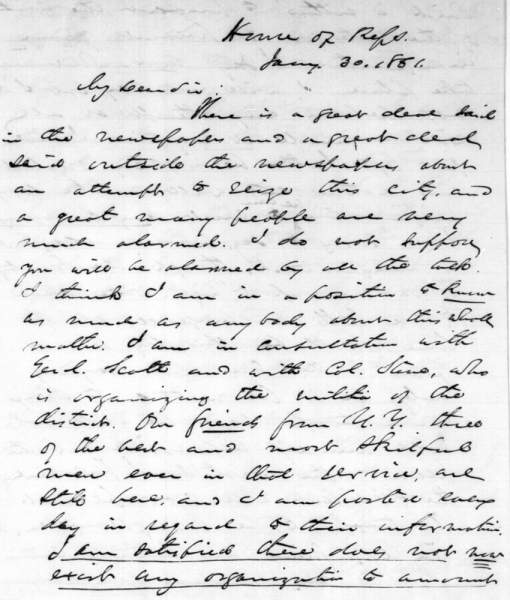 House of Reps.
Jany. 30. 1861.
My Dear Sir:
There is a great deal said
in the newspapers and a great deal
said outside the newspapers about
an attempt to seize this city, and
a great many people are very
much alarmed. I do not suppose
you will be alarmed by all the talk.
I think I am in a position to know
as much as anybody about this whole
matter. I am in consultation with
Genl. Scott and with Col. Stone, who
is organizing the militia of the
district. Our friends from N. Y. three
of the best and most skilful
men ever in that service, are
still here, and I am posted every
day in regard to their information.
I am satisfied there does not now
exist any organization to amount